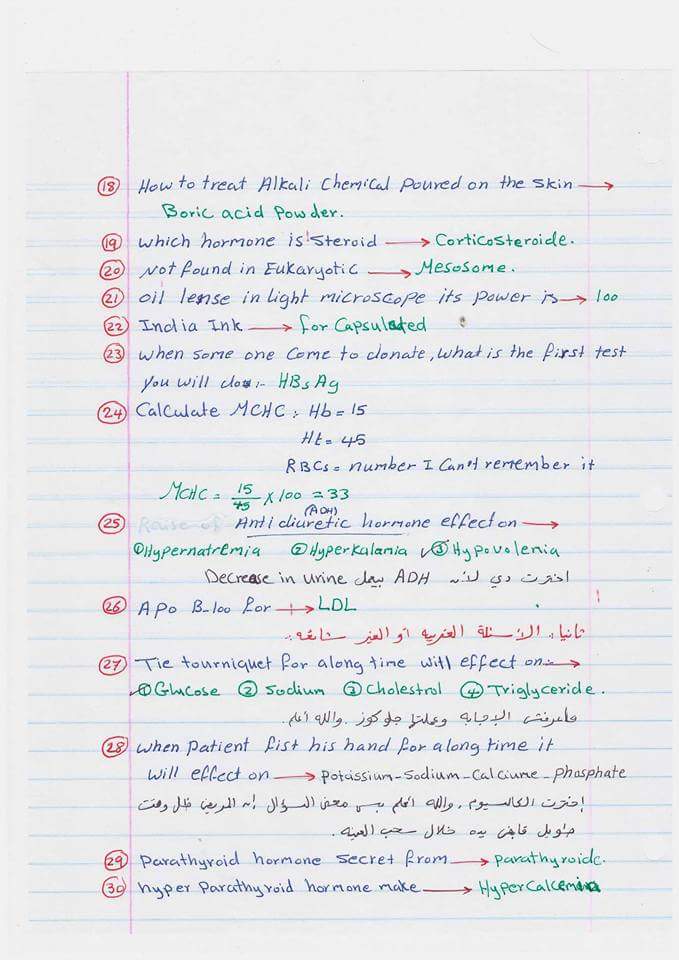 18 How to treat Alkali Chemical Poured on the skin →
Boric acid Powder.
19 which hormone is steroid → Corticosteroide.
20 Not found in Eukaryotic → Mesosome.
21 oil lense in light microscope its power is → 100
22 India Ink → for Capsulated
23 when some one Come to donate, what is the first test
you will do :- HBsAg
24 Calculate MCHC : Hb = 15
Ht = 45
RBCs = number I Can't remember it
MCHC = 15/45 x 100 = 33
(ADH)
25 Anti diuretic hormone effect on →
① Hypernatremia ② Hyperkalamia ③ Hypovolemia
اخترت دي لأنه ADH بيعمل Decrease in urine
26 Apo B-100 for → LDL
ثانيا: الأسئلة الغريبه أو الغير شائعه :
27 Tie tourniquet for along time will effect on →
① Glucose ② Sodium ③ Cholestrol ④ Triglyceride.
ماعرفتش الإجابه وعملتها جلوكوز. والله أعلم.
28 when patient fist his hand for along time it
will effect on → Potassium - Sodium - Calcium - Phosphate
إخترت الكالسيوم. والله أعلم بس معنى السؤال إنه المريض ظل وقت
طويل قابض يده خلال سحب العينه.
29 Parathyroid hormone secret from → Parathyroide.
30 hyper Parathyroid hormone make → HyperCalcemia